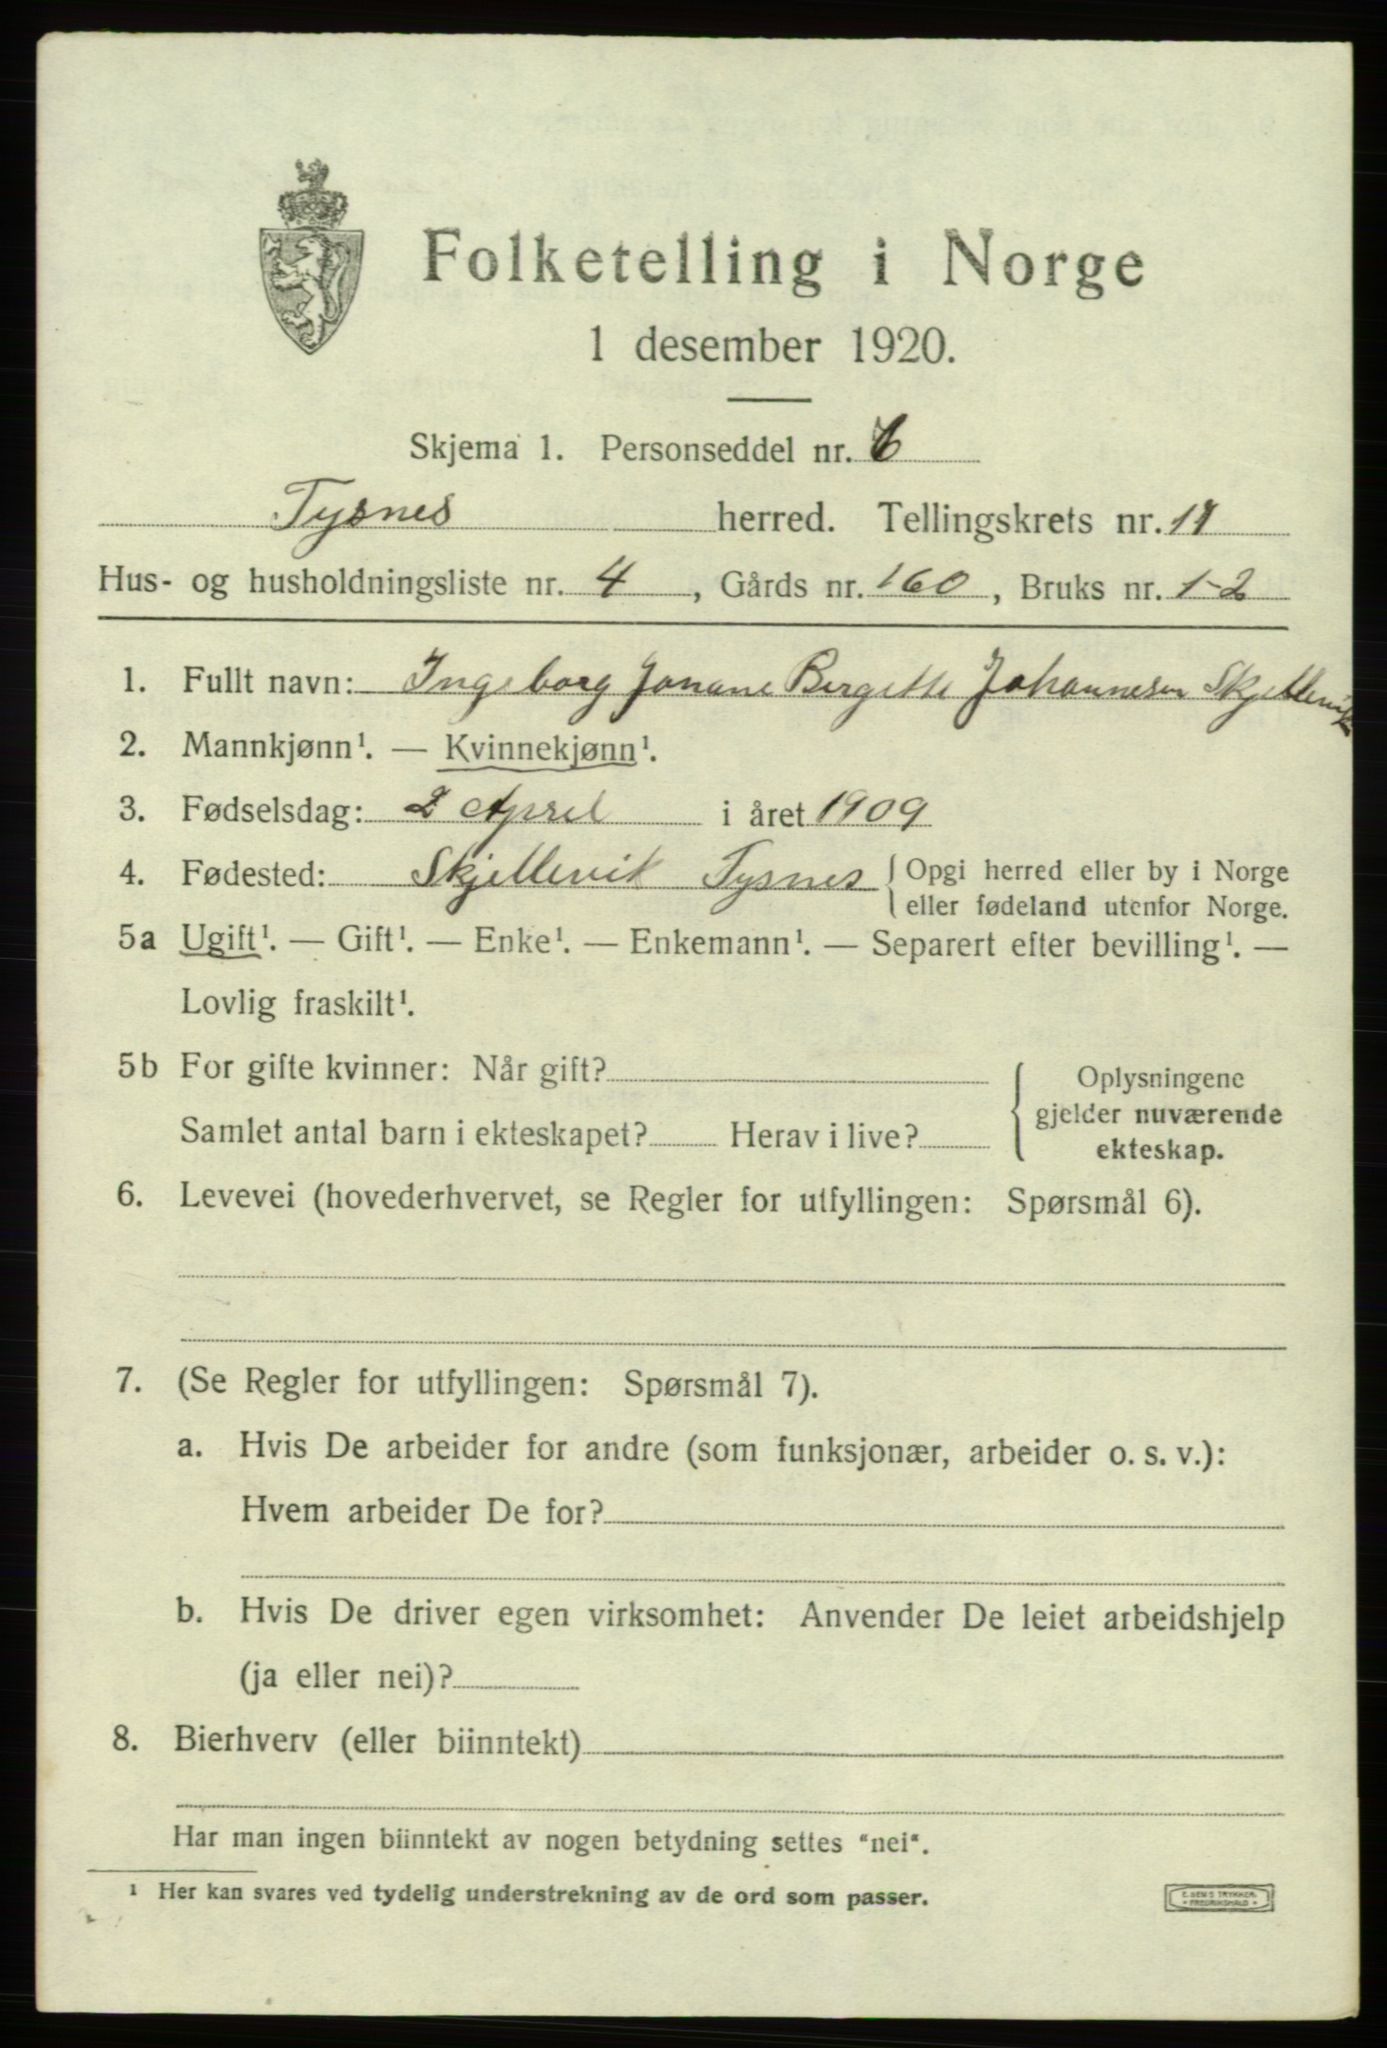 Folketelling i Norge
1 desember 1920.
Skjema 1. Personseddel nr. 6
Tysnes herred. Tellingskrets nr. 11
Hus- og husholdningsliste nr. 4, Gårds nr. 160, Bruks nr. 1-2
1. Fullt navn: Ingeborg Jonane Birgitte Johannesen Skjellevik
2. Mannkjønn¹. — Kvinnekjønn¹.
3. Fødselsdag: 2 April i året 1909
4. Fødested: Skjellevik Tysnes { Opgi herred eller by i Norge
eller fødeland utenfor Norge.
5a Ugift¹. — Gift¹. — Enke¹. — Enkemann¹. — Separert efter bevilling¹. —
Lovlig fraskilt¹.
5b For gifte kvinner: Når gift?
Samlet antal barn i ekteskapet? Herav i live?
Oplysningene
gjelder nuværende
ekteskap.
6. Levevei (hovederhvervet, se Regler for utfyllingen: Spørsmål 6).
7. (Se Regler for utfyllingen: Spørsmål 7).
a. Hvis De arbeider for andre (som funksjonær, arbeider o. s. v.):
Hvem arbeider De for?
b. Hvis De driver egen virksomhet: Anvender De leiet arbeidshjelp
(ja eller nei)?
8. Bierhverv (eller biinntekt)
Har man ingen biinntekt av nogen betydning settes "nei".
¹ Her kan svares ved tydelig understrekning av de ord som passer.